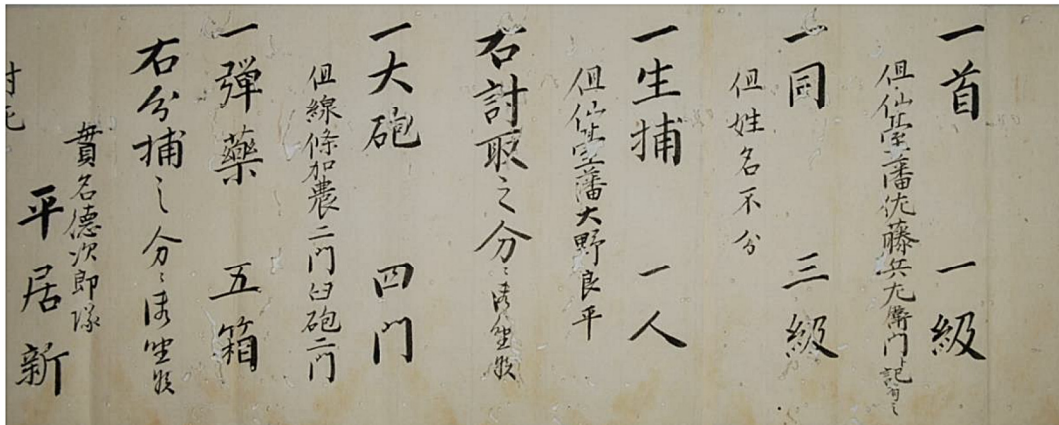 一首 一級
但仙臺藩佐藤兵左衛門ト記有之
一同 三級
但姓名不分
一生捕 一人
但仙臺藩大野良平
右討取之分ニ御座候
一大砲 四門
但線條加農二門臼砲二門
一弾藥 五箱
右分捕之分ニ御座候
貫名德次郎隊
平居新
討死